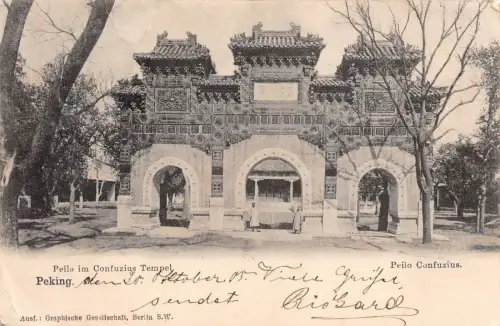 Peilo im Confuzius Tempel.
Peilo Confuzius.
Peking, den 20. Oktober 05. Viele Grüße
sendet
Ausf: Graphische Gesellschaft, Berlin S.W.